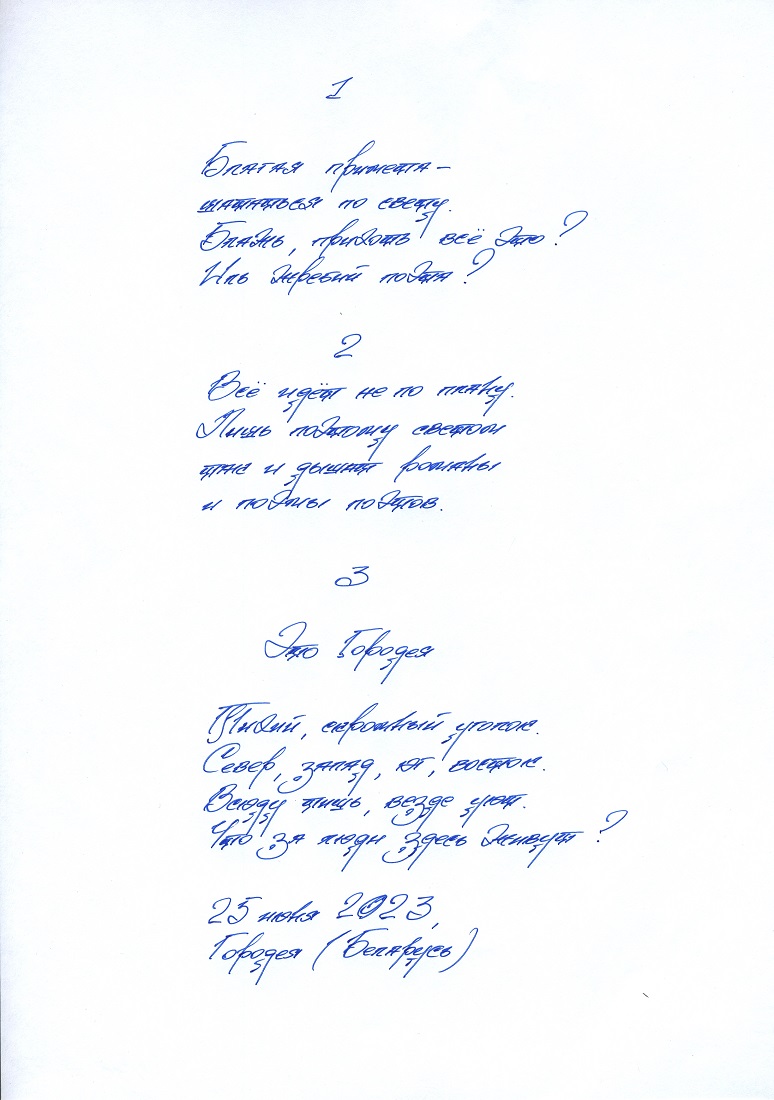 1
Благая примета –
шататься по свету.
Блажь, прихоть всё это?
Иль жребий поэта?
2
Всё идёт не по плану.
Лишь поэтому светом
так и дышат романы
и поэмы поэтов.
3
Это Городея
Тихий, скромный уголок.
Север, запад, юг, восток.
Всюду тишь, везде уют.
Что за люди здесь живут?
25 июня 2023,
Городея (Беларусь)